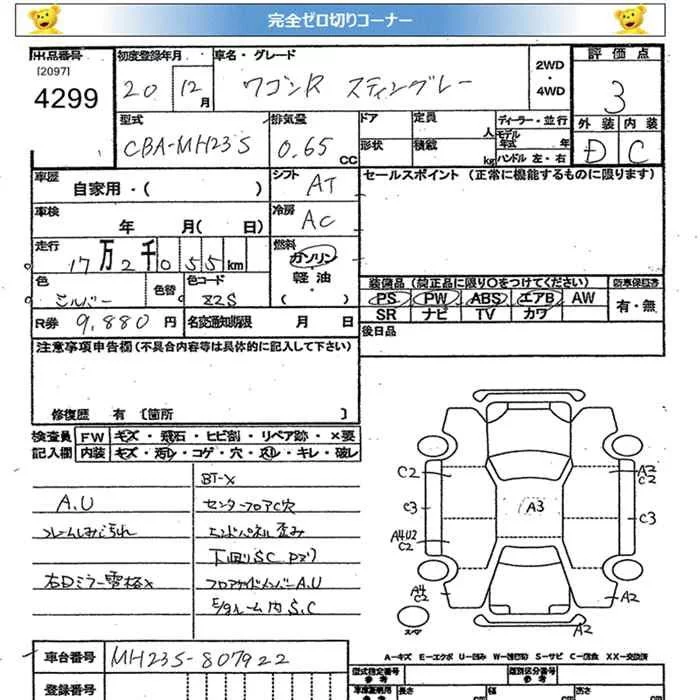 完全ゼロ切りコーナー
出品番号
[2097]
4299
初度登録年月
20 12月
車名・グレード
ワゴンR スティングレー
2WD
・
4WD
評価点
3
外装 内装
D C
型式
CBA-MH23S
排気量
0.65 CC
ドア
定員
人
形状
積載
kg
ディーラー・並行
モデル
年式 年
ハンドル 左・右
車歴
自家用・( )
シフト
AT
セールスポイント (正常に機能するものに限ります)
車検
年 月( 日)
冷房
AC
走行
17万2千055km
燃料
ガソリン
軽油
・
( )
色
シルバー
色替
色コード
Z2S
装備品 (純正品に限り〇をつけてください)
新車保証書
PS PW ABS エアB AW
有・無
SR ナビ TV カワ
R券 9,880 円
名変通知期限 月 日
後日品
注意事項申告欄(不具合内容等は具体的に記入して下さい)
修復歴 有 〔箇所 〕
検査員
記入欄
FW キズ・飛石・ヒビ割・リペア跡・×要
内装 キズ・汚れ・コゲ・穴・スレ・キレ・破レ
BT-X
A.U
センターフロアC穴
エンドパネル歪み
下回りS.C
右Dミラー電格×
フロアサイドメンバーA.U
Eルーム内S.C
C2
A2
C2
C3
A3
C3
A4U2
C2
A4
C2
A2
A2
スペア
A-キズ E-エクボ U-凹み W-(補修跡) S-サビ C-腐食 XX-交換済
車台番号
MH23S-807922
登録番号
型式指定番号
参考
類別区分番号
参考
長さ
幅
高さ